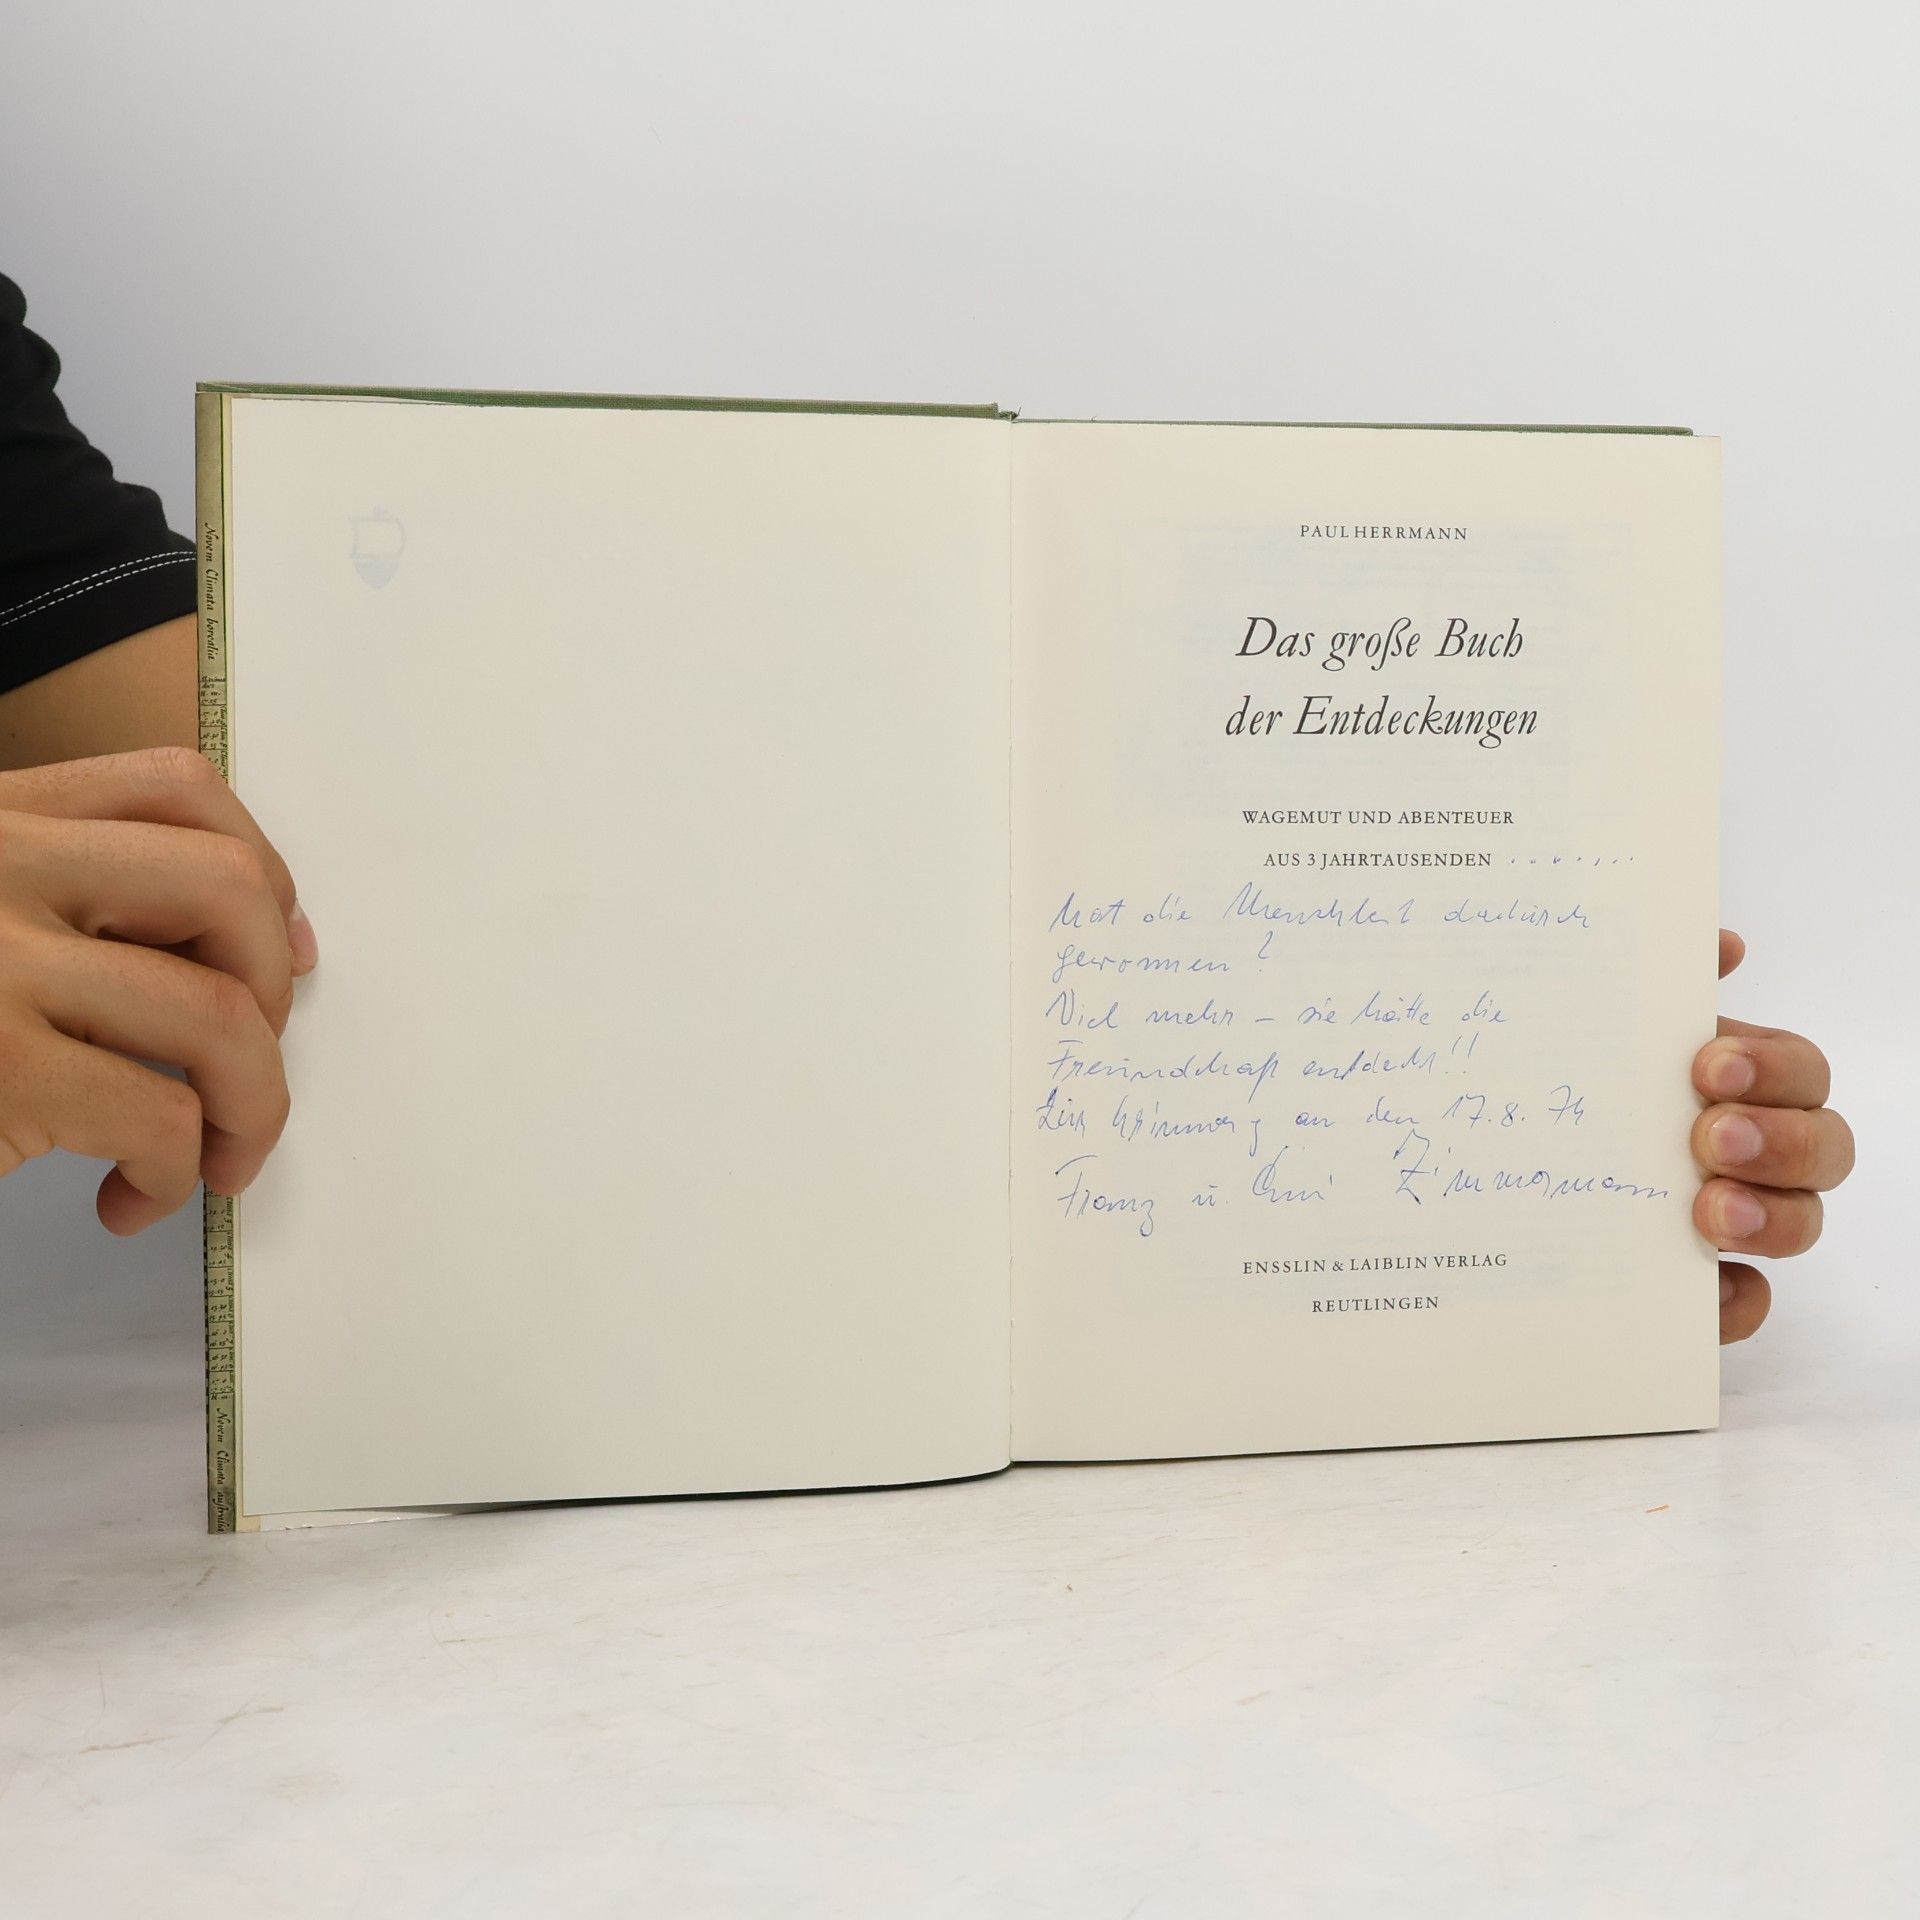 Novem Climata borealia
Novem Climata australia
PAUL HERRMANN
Das große Buch
der Entdeckungen
WAGEMUT UND ABENTEUER
AUS 3 JAHRTAUSENDEN .......
hat die Menschheit dadurch
gewonnen?
Viel mehr – sie hätte die
Freundschaft entdeckt!!
Zur Erinnerung an den 17.8.74
Franz u. Zimmermann
ENSSLIN & LAIBLIN VERLAG
REUTLINGEN